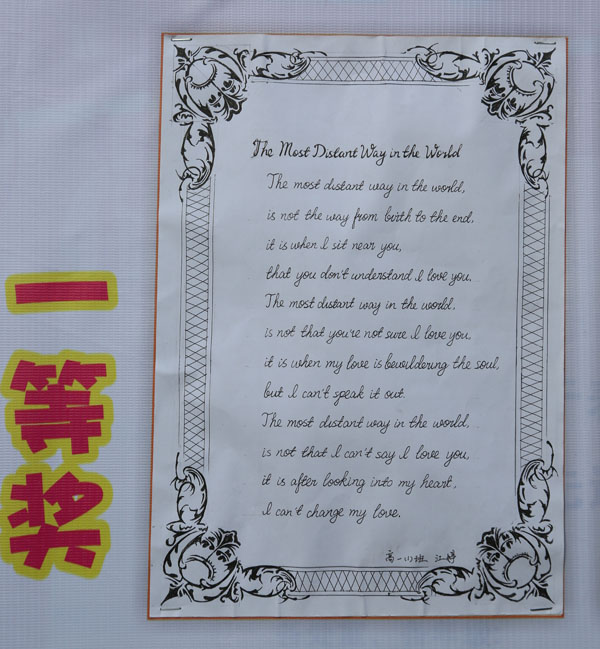 一等奖
The Most Distant Way in the World
The most distant way in the world,
is not the way from birth to the end,
it is when I sit near you,
that you don't understand I love you.
The most distant way in the world,
is not that you're not sure I love you,
it is when my love is bewildering the soul,
but I can't speak it out.
The most distant way in the world,
is not that I can't say I love you,
it is after looking into my heart,
I can't change my love.
高一(1)班 江婷